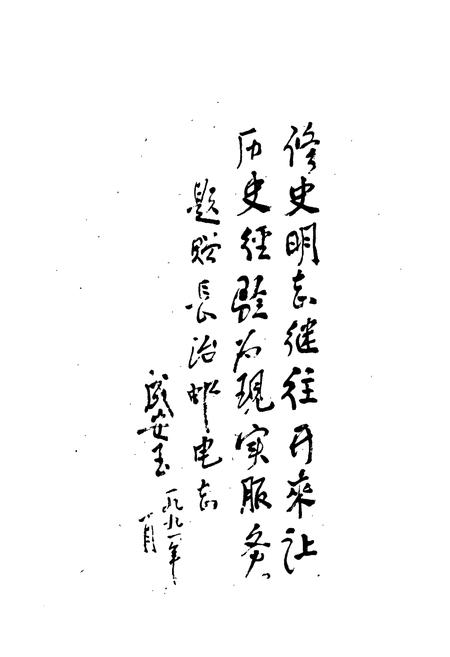 修史明志继往开来让
历史经验为现实服务
题赠长治邮电志
成安玉
一九九一年
一月